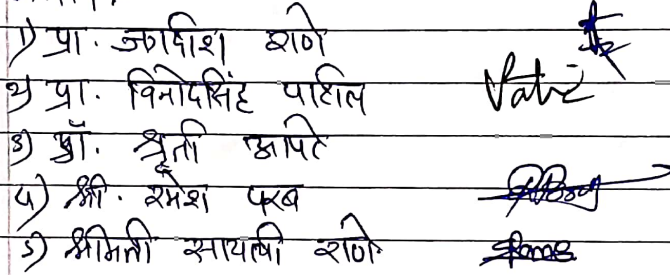 १) प्रा. जगदिश राणे
२) प्रा. विनोदसिंह पाटील
३) प्रॉ. श्रृती आपटे
४) श्री. रमेश परब
५) श्रीमिती सायली राणे